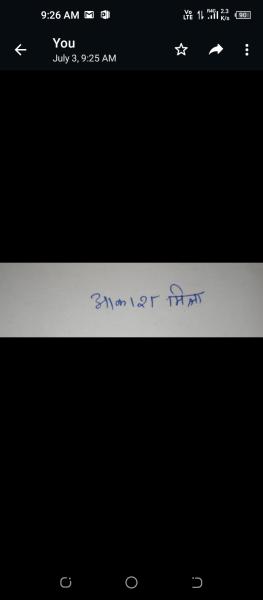 9:26 AM
Vo LTE R4G 2.3 K/s 90
You
July 3, 9:25 AM
आकाश मिश्रा